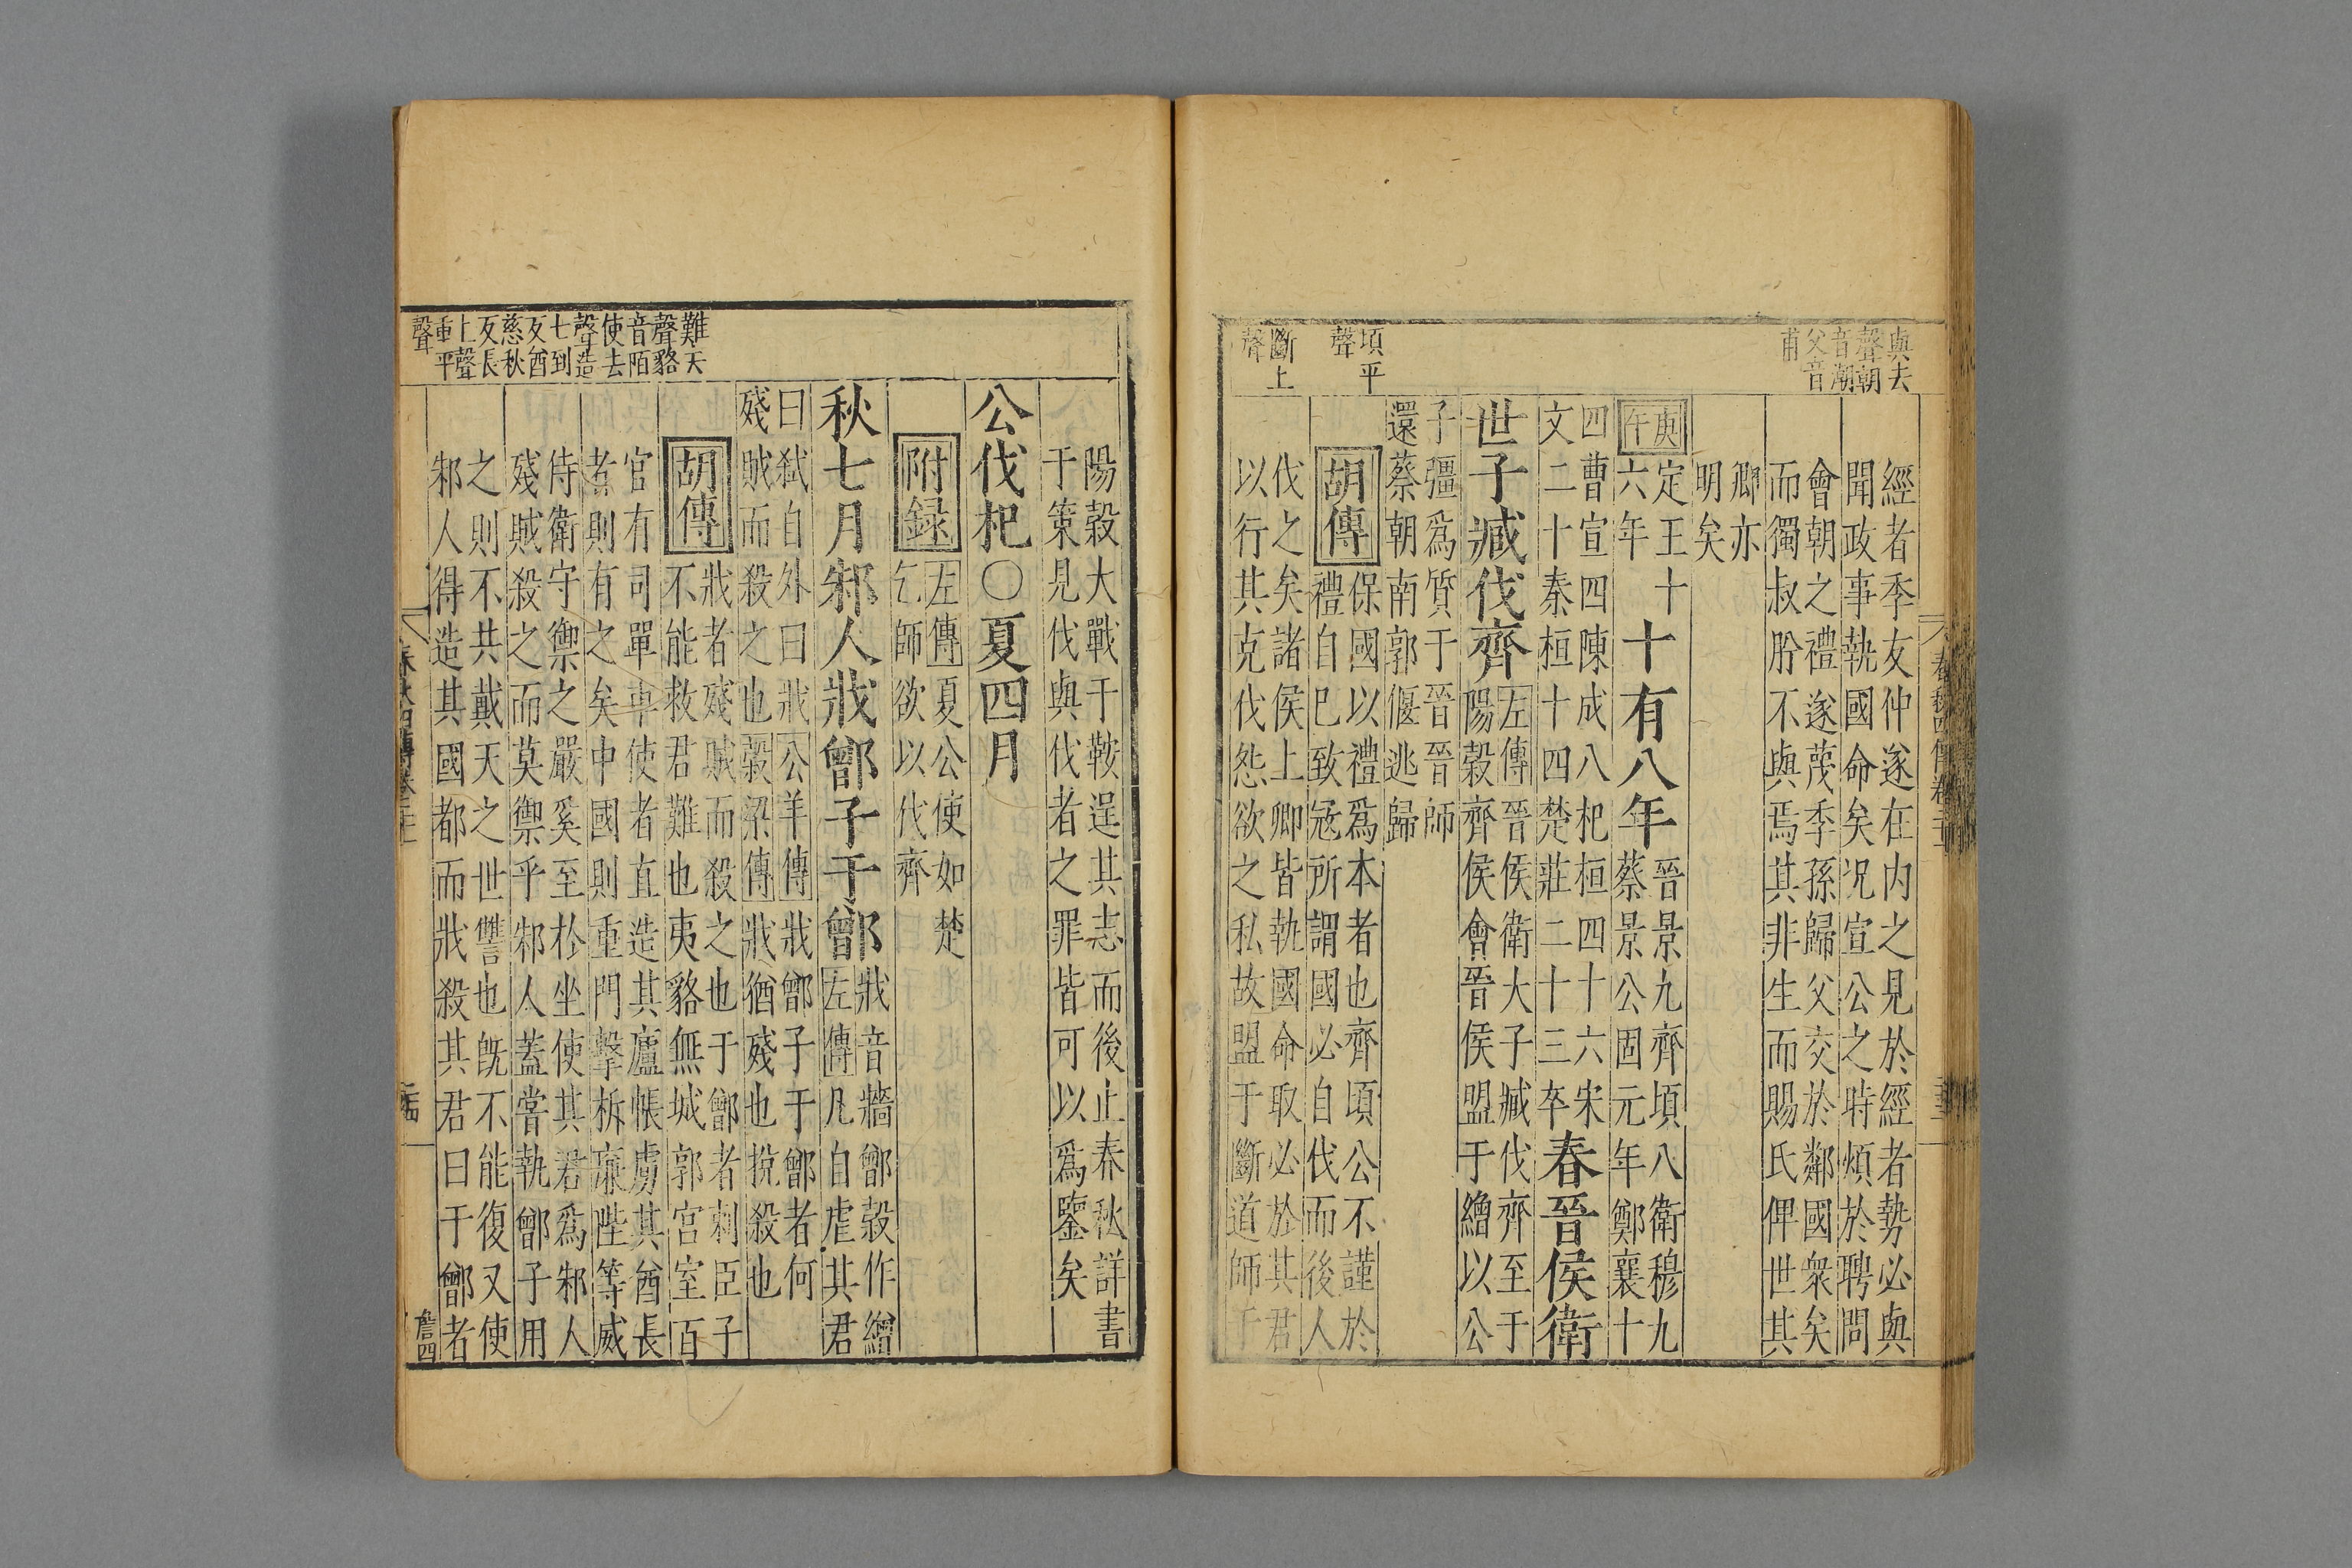 與去
聲朝
音潮
父音
甫
經者季友仲遂在內之見於經者勢必與
聞政事執國命矣况宣公之時煩於聘問
會朝之禮遂蔑季孫歸父交於鄰國衆矣
而獨叔肸不與焉其非生而賜氏俾世其
卿亦
明矣
庚午
定王十
六年
十有八年
晉景九齊頃八衛穆九
蔡景公固元年鄭襄十
四曹宣四陳成八杞桓四十六宋
文二十秦桓十四楚莊二十三卒
春晉侯衛
世子臧伐齊
左傳晉侯衛大子臧伐齊至于
陽穀齊侯會晉侯盟于繒以公
子彊爲質于晉晉師
還蔡朝南郭偃逃歸
頃平
聲
胡傳
保國以禮爲本者也齊頃公不謹於
禮自已致宼所謂國必自伐而後人
斷上
聲
伐之矣諸侯上卿皆執國命取必於其君
以行其克伐怨欲之私故盟于斷道師于
春秋四傳卷二十
陽穀大戰于鞍逞其志而後止春秋詳書
于策見伐與伐者之罪皆可以爲鑒矣
公伐杞○夏四月
附録
左傳夏公使如楚
乞師欲以伐齊
秋七月邾人戕鄫子于鄫
戕音牆鄫穀作繒
左傳凡自虐其君
曰弑自外曰戕公羊傳戕鄫子于鄫者何
殘賊而殺之也穀梁傳戕猶殘也捝殺也
難夭
聲貉
音陌
使去
聲造
七到
反酋
慈秋
反長
上聲
重平
聲
胡傳
戕者殘賊而殺之也于鄫者刺臣子
不能救君難也夷貉無城郭宮室百
官有司單車使者直造其廬帳虜其酋長
者則有之矣中國則重門擊柝廉陛等威
侍衛守禦之嚴奚至於坐使其君爲邾人
殘賊殺之而莫禦乎邾人蓋嘗執鄫子用
之則不共戴天之世讐也旣不能復又使
邾人得造其國都而戕殺其君曰于鄫者
春秋四傳卷二十
詹四